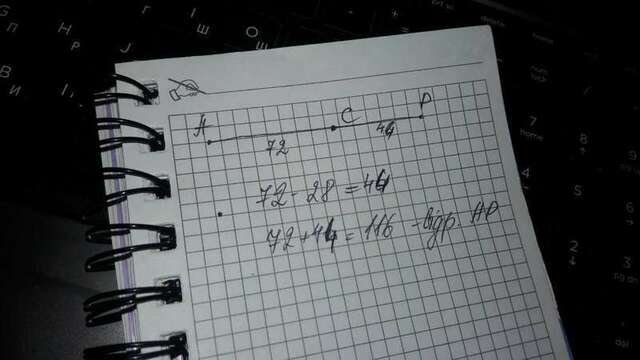 A C P
72 44
72 - 28 = 44
72 + 44 = 116 - відр. АР